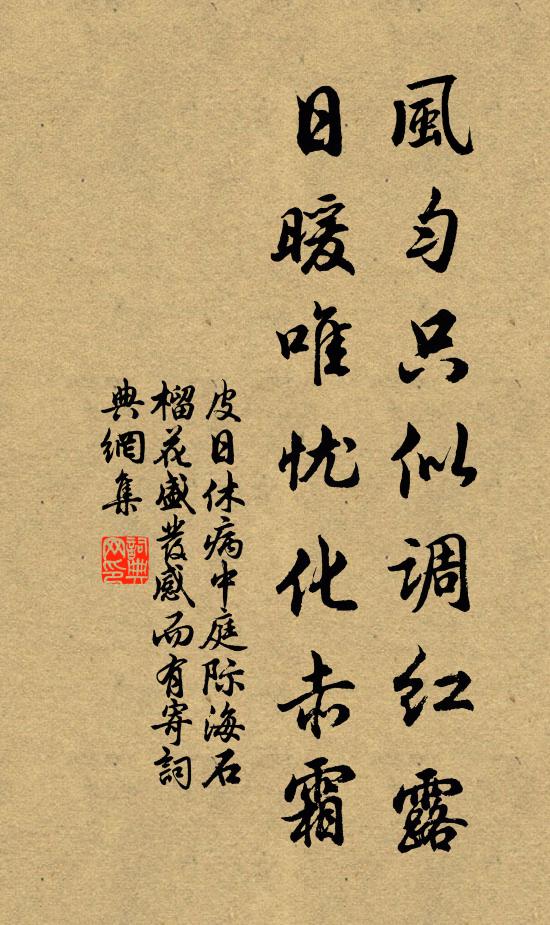 風匀只似调红露
日暖唯忧化赤霜
皮日休病中庭际海石
榴花盛發感而有寄詞
典網集
詞典網印